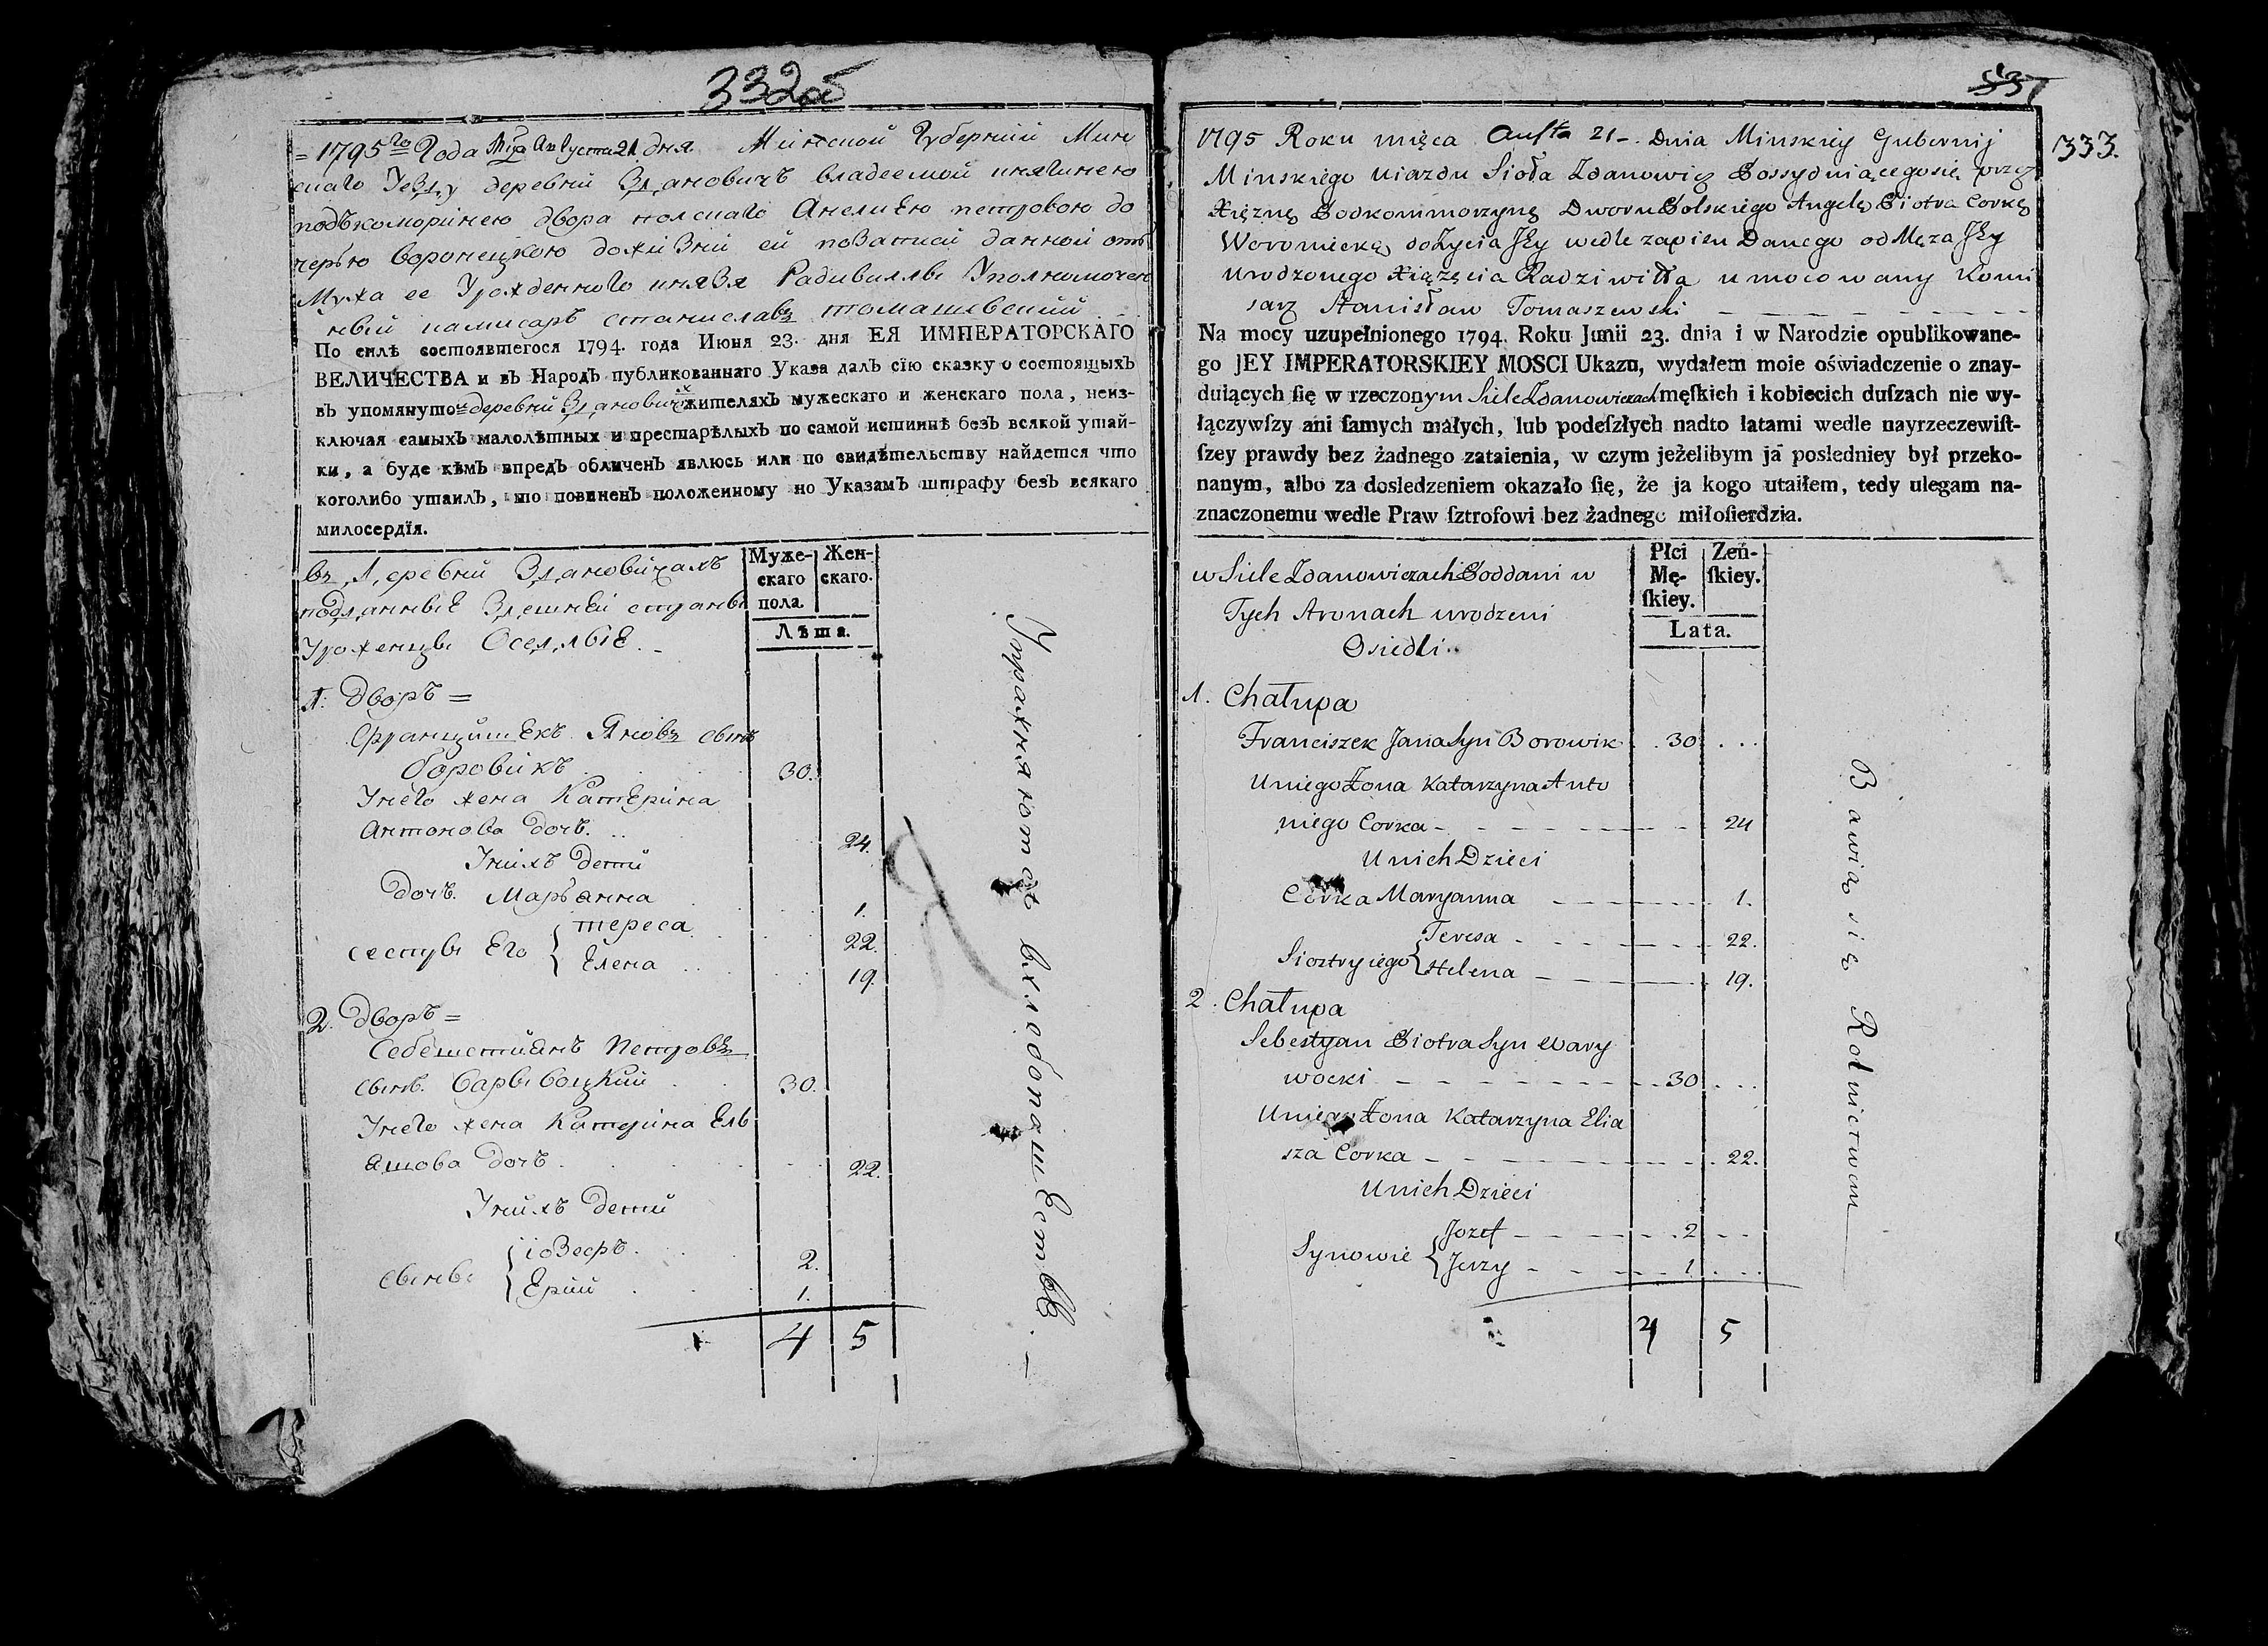 332об
= 1795го Года Мца Августа 21 дня Минской Губернии Мин
скаго Уезду деревни Здановичъ владеемой княгинею
подъкоморинею двора полскаго Анелиею петровою до
черью воронецкою дожизни ей позаписи данной отъ
Мужа ее Урожденного князя Радивиллы Уполномочен
ный камисаръ станиславъ томашевский
По силѣ состоявшегося 1794. года Июня 23. дня ЕЯ ИМПЕРАТОРСКАГО
ВЕЛИЧЕСТВА и въ Народъ публикованнаго Указа далъ сїю сказку о состоящыхъ
въ упомянутой деревни Здановичахъ жителяхъ мужескаго и женскаго пола, неиз-
ключая самыхъ малолѣтныхъ и престарѣлыхъ по самой истиннѣ безъ всякой утай-
ки, а буде кѣмъ впредъ обличенъ явлюсь или по свидѣтельству найдется что
коголибо утаилъ, то повиненъ положенному по Указамъ штрафу безъ всякаго
милосердїя.
въ Деревни Здановичахъ
подданные Здешней страны
Уроженцы Оседлые
Муже-
скаго
пола.
Жен-
скаго.
Лѣта.
1. дворъ =
Францишекъ Яновъ сынъ
боровикъ 30.
Унего жена Катерина
Антонова дочь 24.
Унихъ дети
дочь Марьянна 1.
сестры Его { тереса 22.
Елена 19.
2. дворъ =
Себештиянъ Петровъ
сынъ Варывоцкий 30.
Унего жена Катерина Ель
яшова дочь 22.
Унихъ дети
сыны { іозефъ 2.
Ерий 1.
4 5
Упражняютсъ вхлебопашестве. —
333.
1795 Roku mięca Augsta 21 - Dnia Minskiey Gubernij
Minskiego Uiazdu Sioła Zdanowicz Possyduiącegosię przez
Xiężnę Podkommorzynę Dworu Polskiego Angelę Piotra Corkę
Woroniecką doŻycia Jey wedle zapisu Danego od Męza Jey
Urodzonego Xiążęcia Radziwiłła umocowany Komi
sarz Stanisław Tomaszewski
Na mocy uzupełnionego 1794. Roku Junii 23. dnia i w Narodzie opublikowane-
go JEY IMPERATORSKIEY MOSCI Ukazu, wydałem moie oświadczenie o znay-
duiących ſię w rzeczonym Siele Zdanowiczach męſkich i kobiecich duſzach nie wy-
łączywſzy ani ſamych małych, lub podeſzłych nadto latami wedle nayrzeczewiſt-
ſzey prawdy bez żadnego zataienia, w czym jeżelibym ja posledniey był przeko-
nanym, albo za dosledzeniem okazało ſię, że ja kogo utaiłem, tedy ulegam na-
znaczonemu wedle Praw ſztrofowi bez żadnego miłoſierdzia.
w Siele Zdanowiczach Poddani w
Tych stronach urodzeni
Osiedli
Płci
Mę-
ſkiey.
Żeń-
ſkiey.
Lata.
1. Chałupa
Franciszek Jana Syn Borowik 30
Uniego Żona Katarzyna Anto
niego Corka 24
Unich Dzieci
Corka Maryanna 1.
Siostry iego { Teresa 22.
Helena 19.
2. Chałupa
Sebestyan Piotra Syn Wary
wocki 30
Uniego Żona Katarzyna Elia
sza Corka 22.
Unich Dzieci
Synowie { Jozef 2
Jerzy 1
4 5
Bawią się Rolnictwem